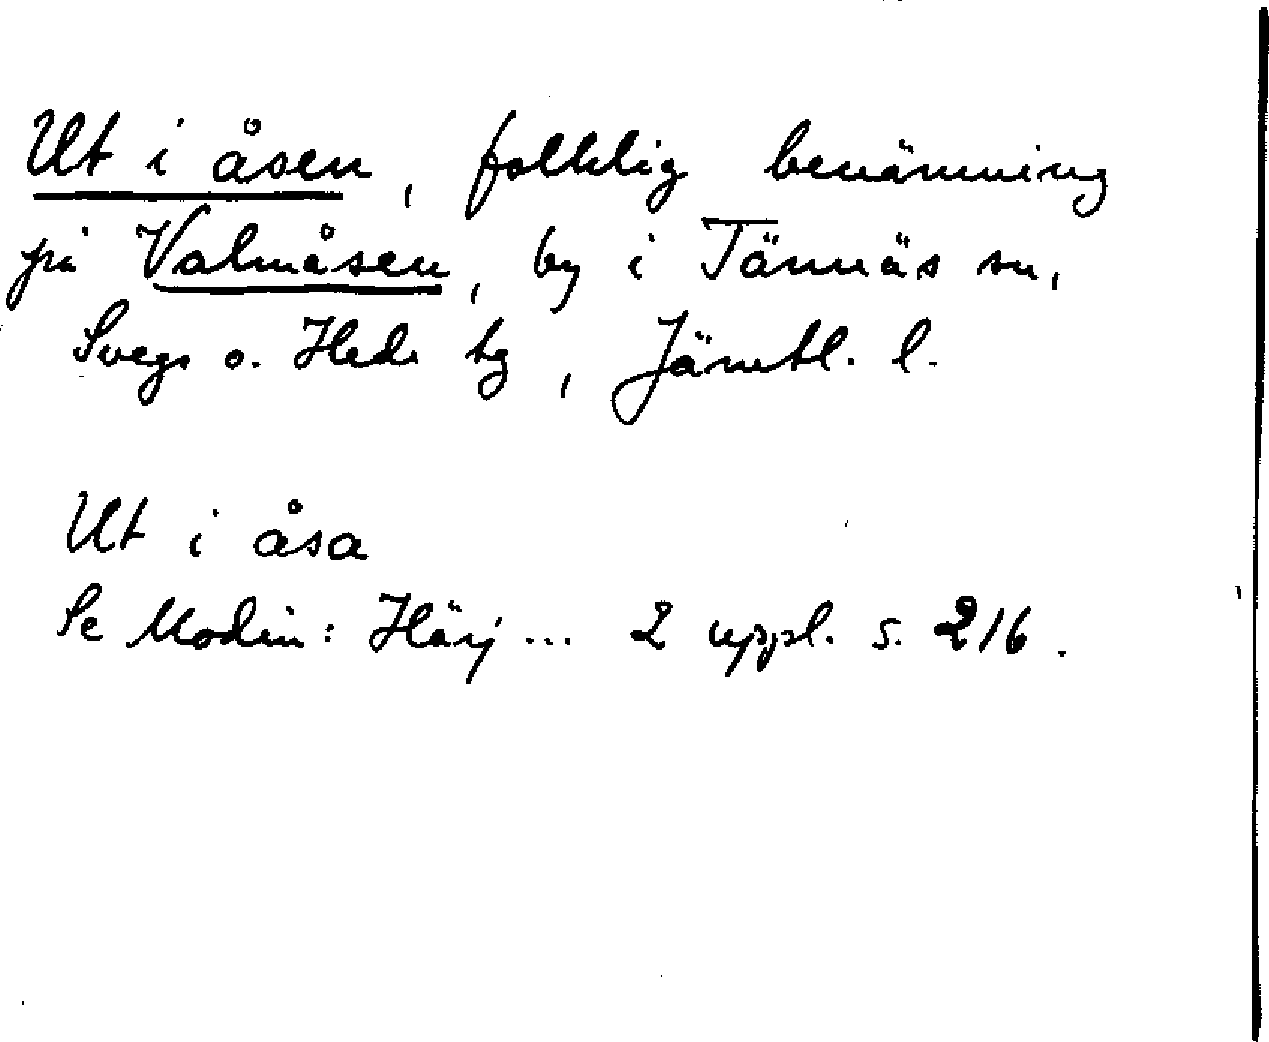 Ut i åsen, folklig benämning
på Valmåsen, by i Tännäs sn,
Svegs o. Hede tg, Jämtl. l.
Ut i åsa
Se Modin: Härj ... 2 uppl. s. 216.